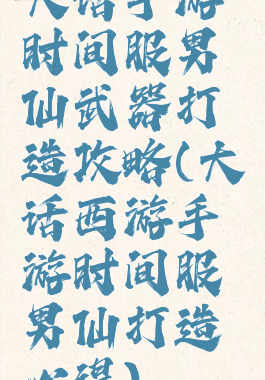 大话手游
时间服男
仙武器打
造攻略(大
话西游手
游时间服
男仙打造
心得)